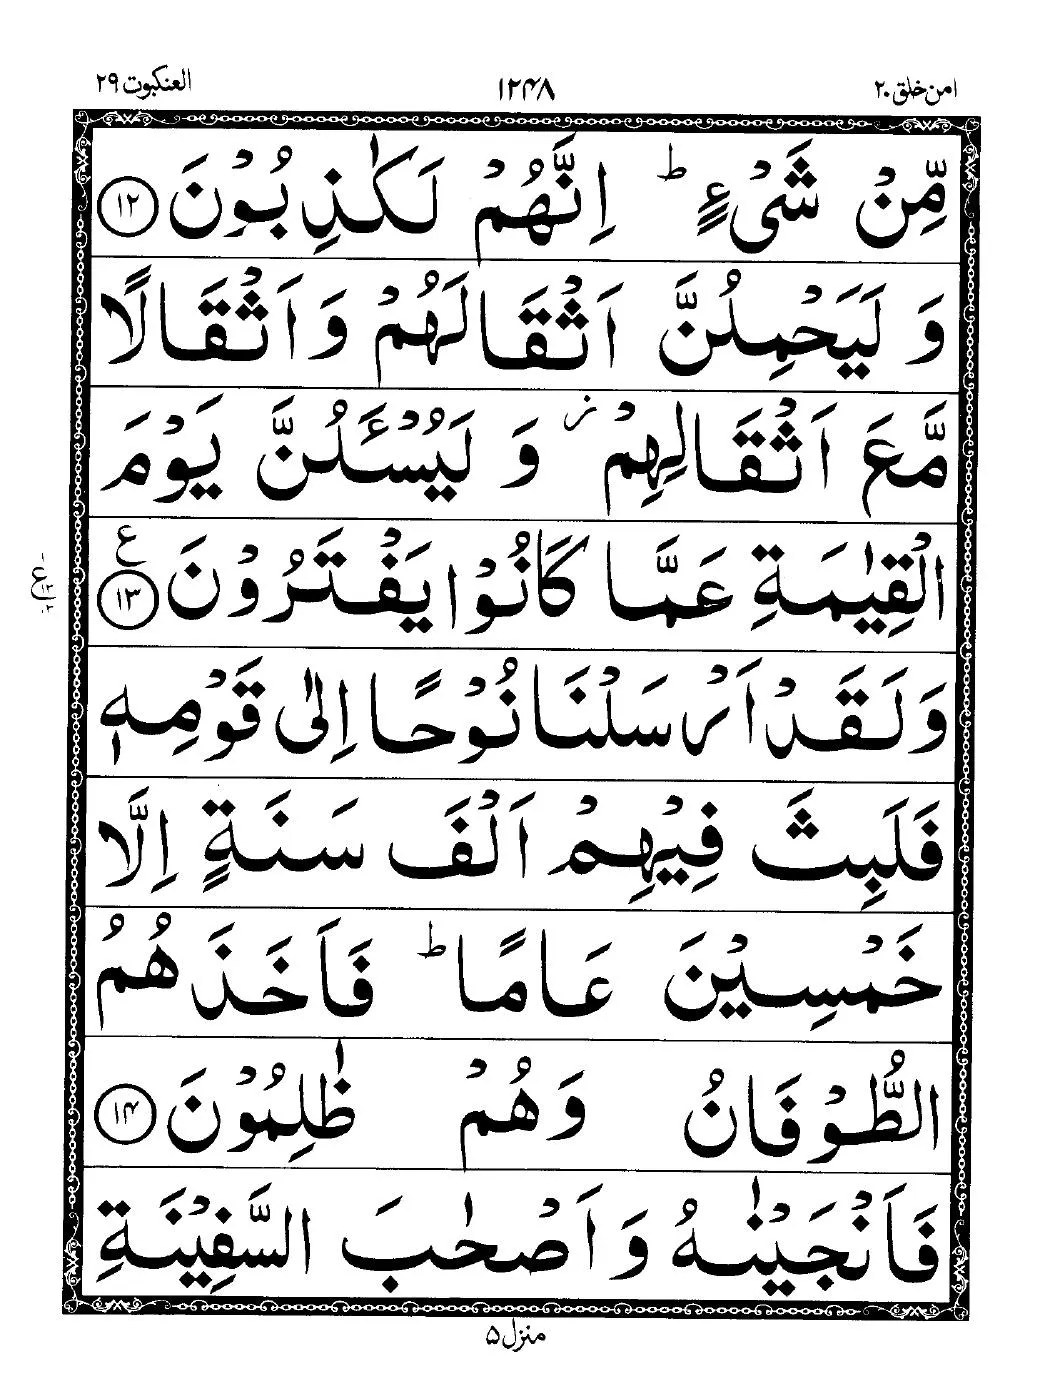 امن خلق ٢٠ ١٢٤٨ العنكبوت ٢٩
مِّنْ شَیْءٍ ؕ اِنَّهُمْ لَكٰذِبُوْنَ ﴿۱۲﴾
وَ لَیَحْمِلُنَّ اَثْقَالَهُمْ وَ اَثْقَالًا
مَّعَ اَثْقَالِهِمْ ؗ وَ لَیُسْـَٔلُنَّ یَوْمَ
الْقِیٰمَةِ عَمَّا كَانُوْا یَفْتَرُوْنَ ﴿۱۳﴾ ع
وَ لَقَدْ اَرْسَلْنَا نُوْحًا اِلٰی قَوْمِهٖ
فَلَبِثَ فِیْهِمْ اَلْفَ سَنَةٍ اِلَّا
خَمْسِیْنَ عَامًا ؕ فَاَخَذَهُمُ
الطُّوْفَانُ وَ هُمْ ظٰلِمُوْنَ ﴿۱۴﴾
فَاَنْجَیْنٰهُ وَ اَصْحٰبَ السَّفِیْنَةِ
منزل ۵